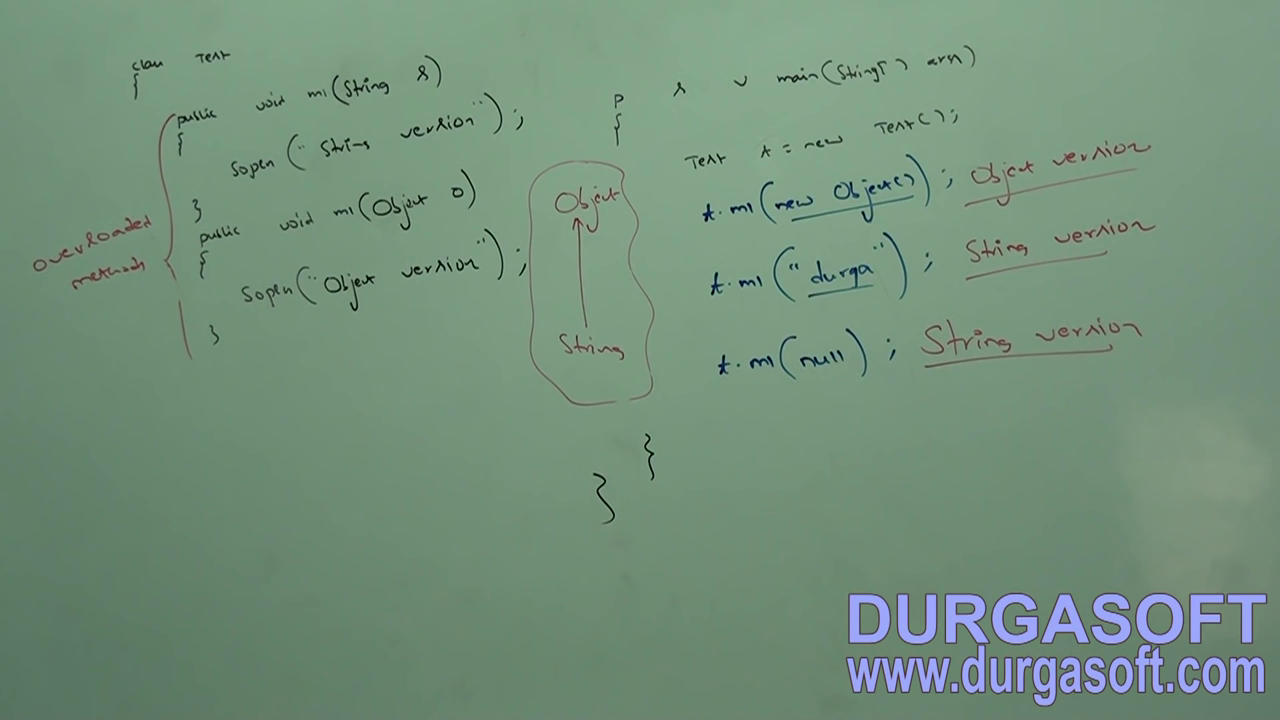 class Test
{
public void m1(String s)
{
Sopln("String version");
}
public void m1(Object o)
{
Sopln("Object version");
}
overloaded
methods
Object
String
P s v main(String[] args)
{
Test t = new Test();
t.m1(new Object()); Object version
t.m1("durga"); String version
t.m1(null); String version
}
}
DURGASOFT
www.durgasoft.com